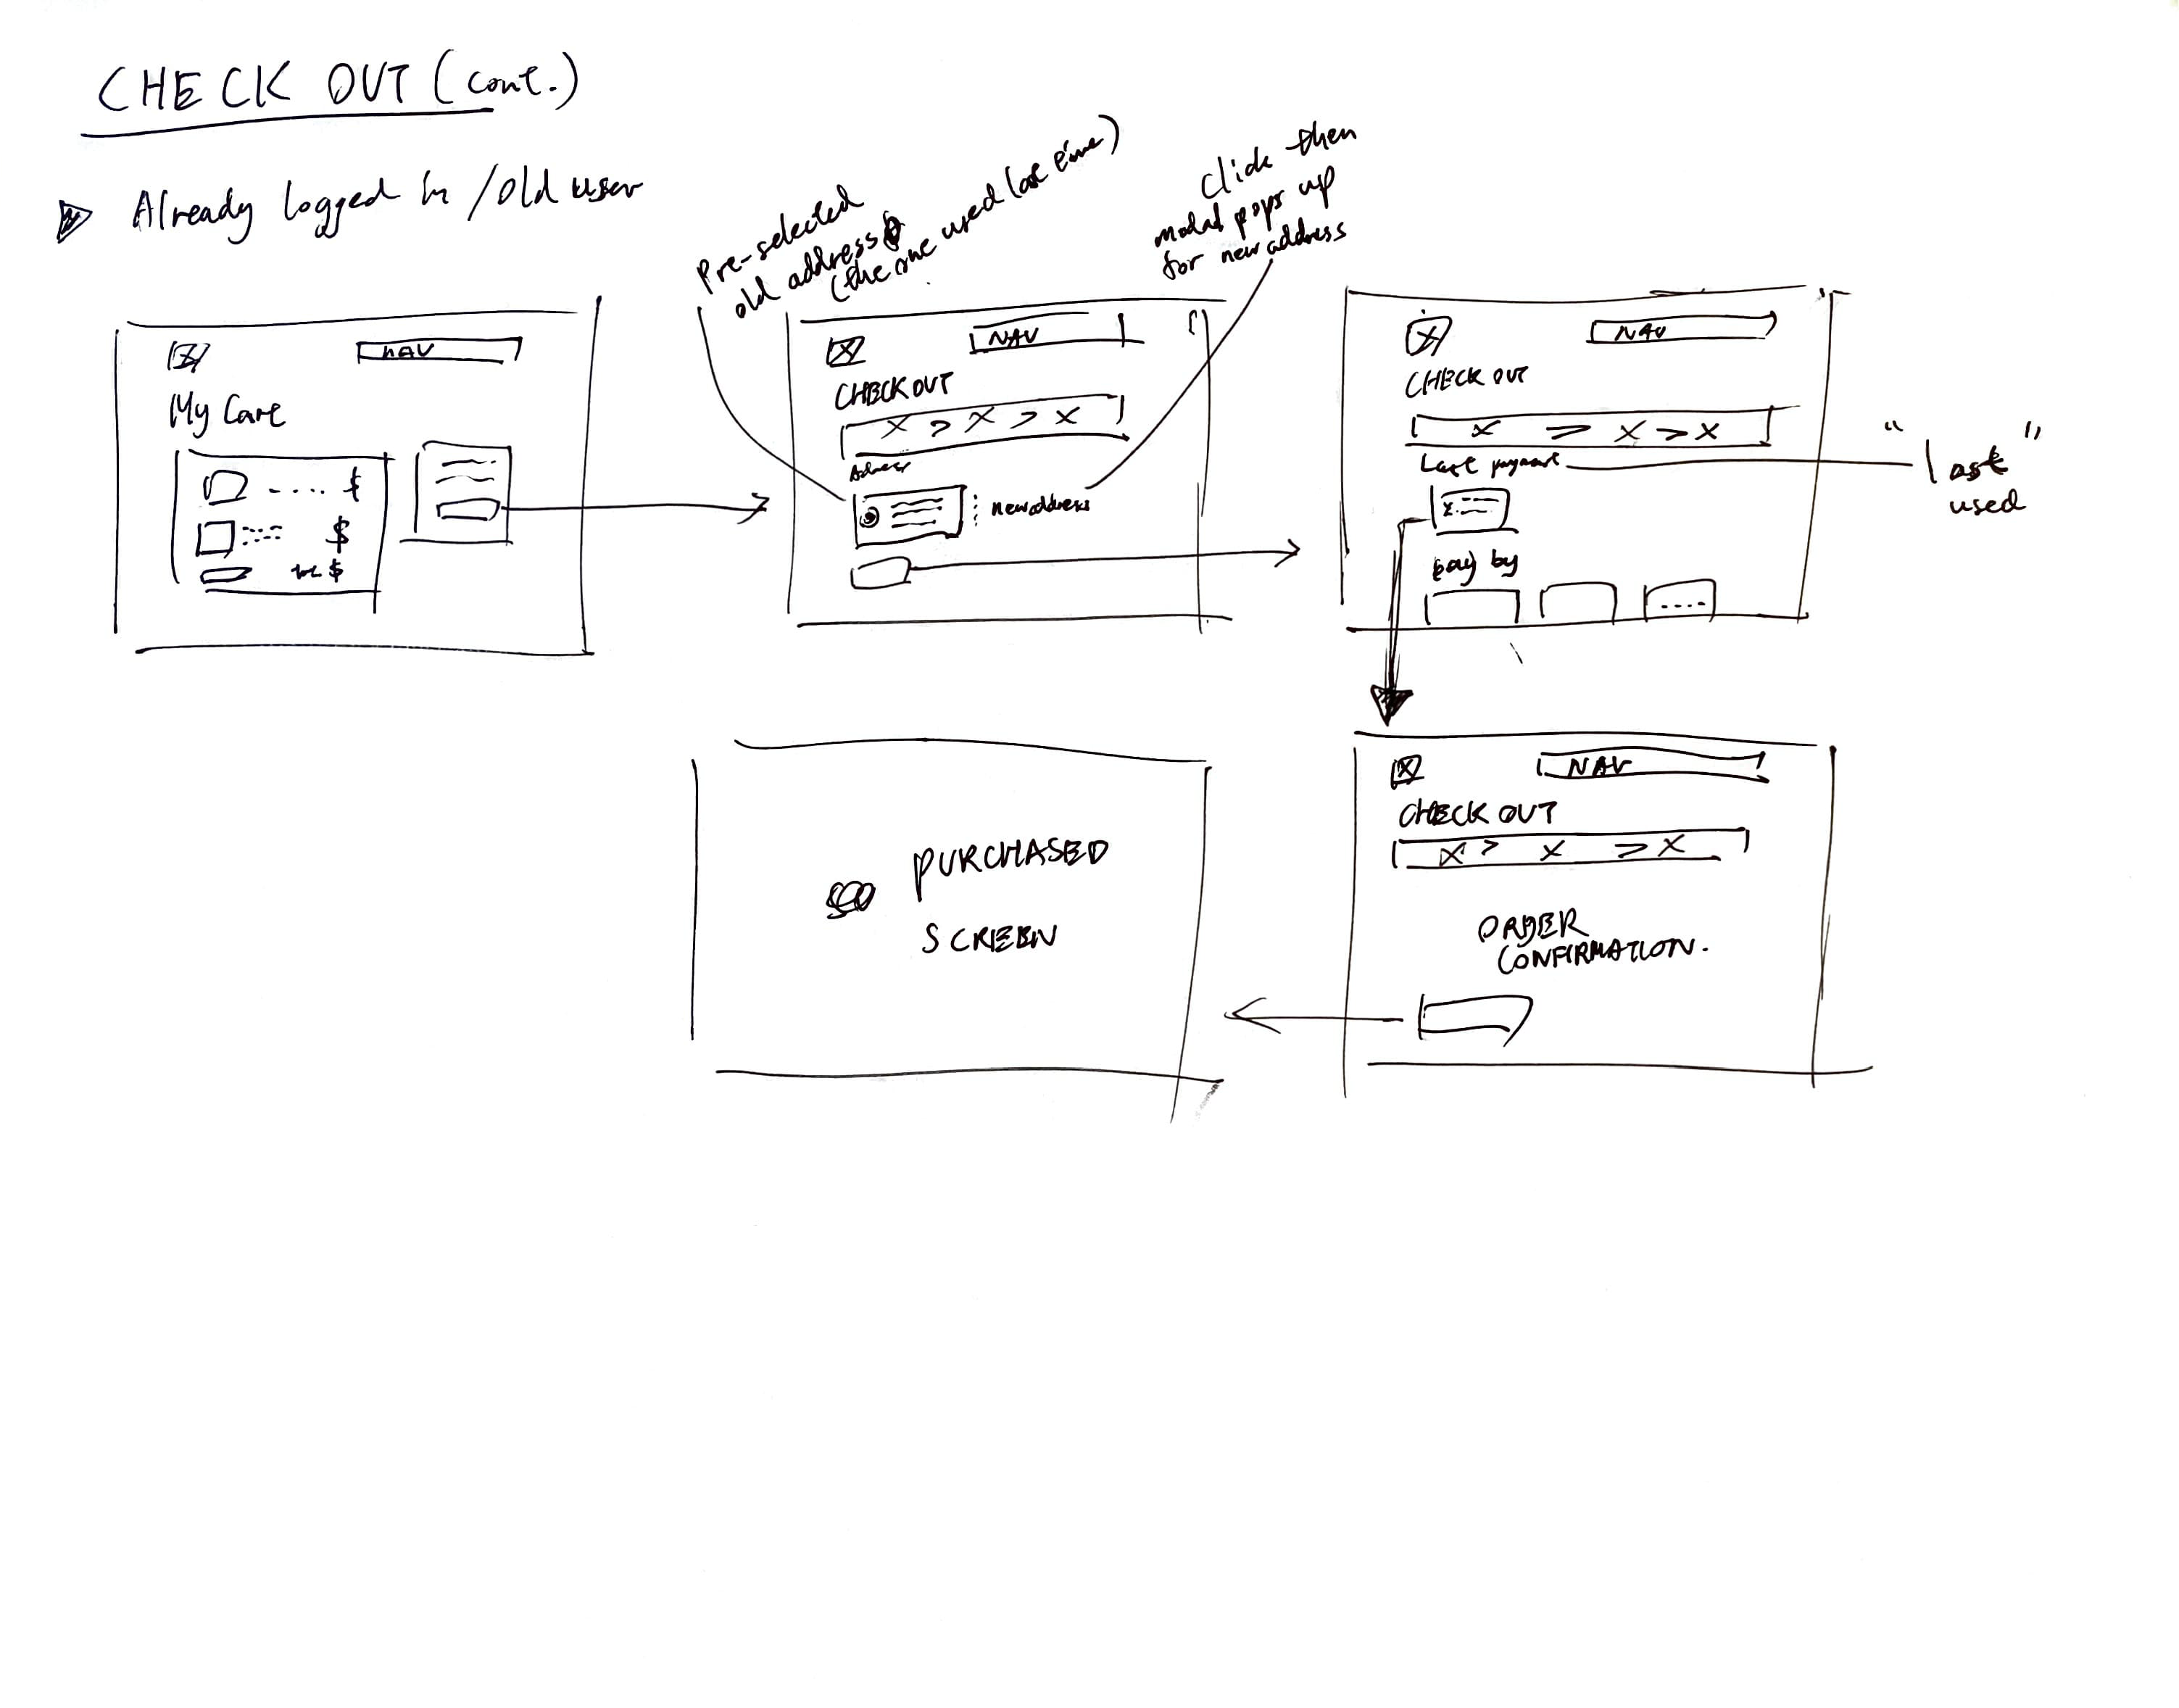 CHECK OUT (cont.)
Already logged in / old user
Pre-selected
old address
(the one used last time)
Click then
modal pops up
for new address
NAV
My Cart
$
$
$
NAV
CHECKOUT
X > X > X
Address
new address
NAV
CHECK OUT
X > X > X
Last payment
pay by
"last"
used
NAV
CHECK OUT
X > X > X
ORDER
CONFIRMATION.
PURCHASED
SCREEN